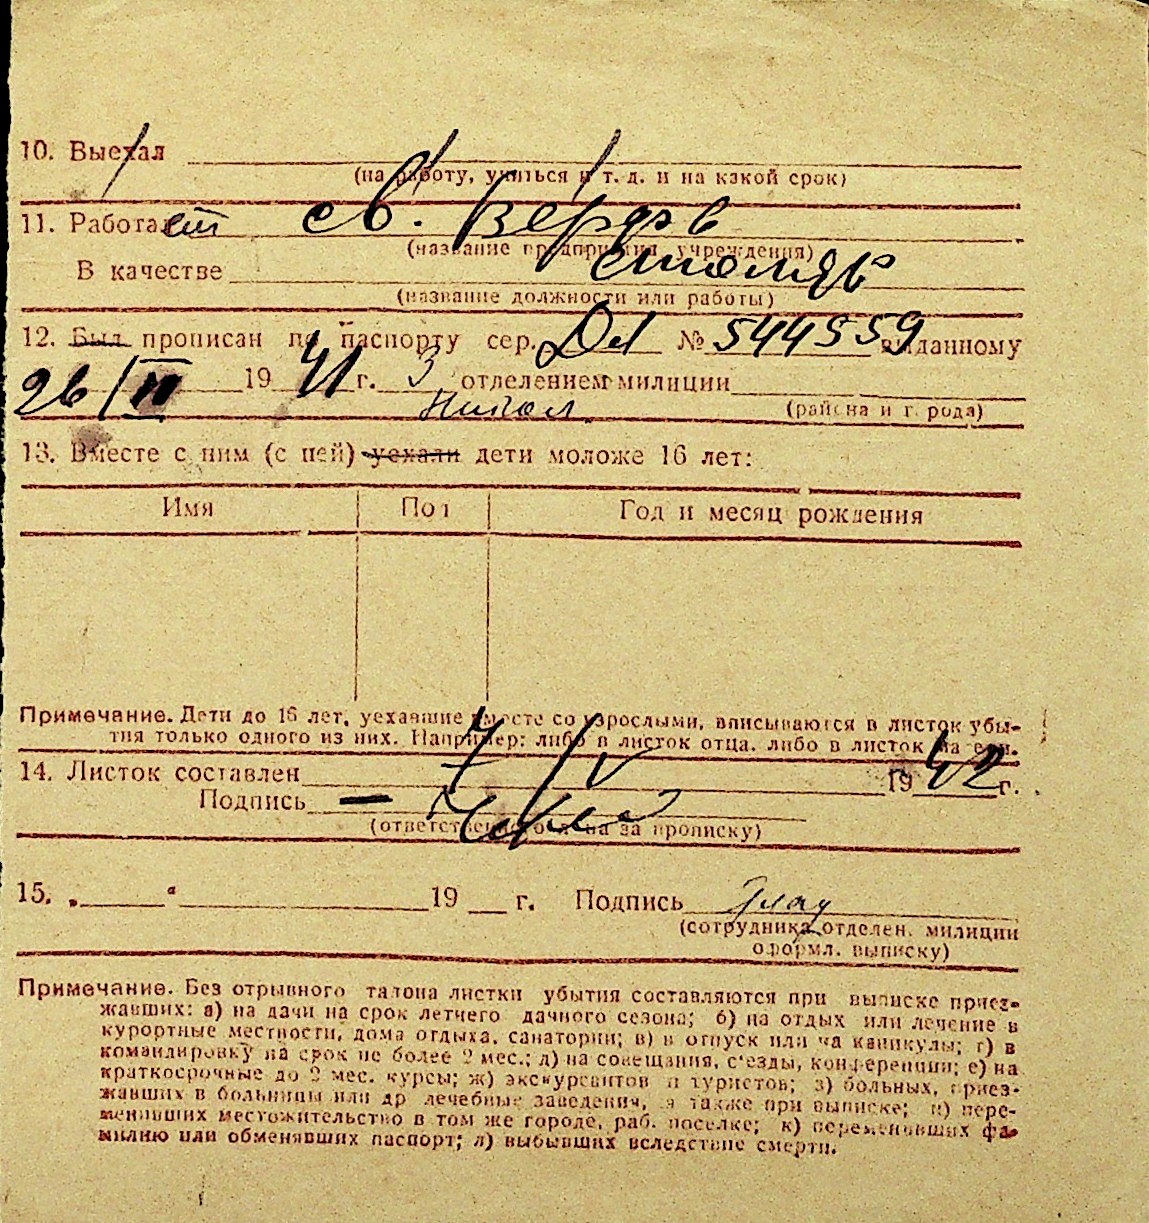 10. Выехал
(на работу, учиться и т. д. и на какой срок)
11. Работает св. Верфь
(название предприятия, учреждения)
В качестве столяр
(название должности или работы)
12. Был прописан по паспорту сер. № 544559 выданному
26/II 1941 г. 3 отделением милиции
Никол
(района и города)
13. Вместе с ним (с ней) уехали дети моложе 16 лет:
Имя Пол Год и месяц рождения
Примечание. Дети до 16 лет, уехавшие вместе со взрослыми, вписываются в листок убы-
тия только одного из них. Например: либо в листок отца, либо в листок матери.
14. Листок составлен 7/V 1942 г.
Подпись —
(ответственного лица за прописку)
15. „ “ 19 г. Подпись
(сотрудника отделен. милиции
оформл. выписку)
Примечание. Без отрывного талона листки убытия составляются при выписке приез-
жавших: а) на дачи на срок летнего дачного сезона; б) на отдых или лечение в
курортные местности, дома отдыха, санатории; в) в отпуск или на каникулы; г) в
командировку на срок не более 2 мес.; д) на совещания, с'езды, конференции; е) на
краткосрочные до 2 мес. курсы; ж) экскурсантов и туристов; з) больных, приез-
жавших в больницы или др лечебные заведения, а также при выписке; и) пере-
менивших местожительство в том же городе, раб. поселке; к) переменивших фа-
милию или обменявших паспорт; л) выбывших вследствие смерти.